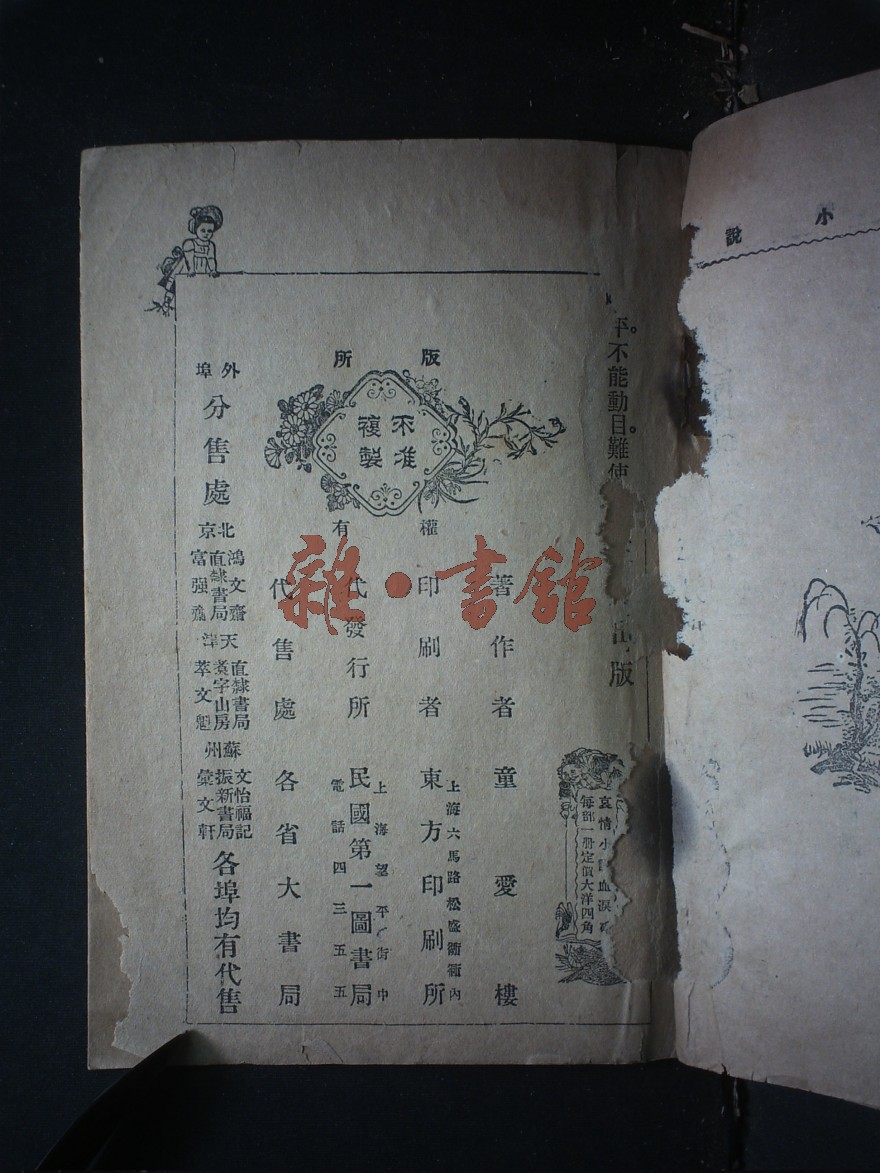 小說
平。不能動。目難使
出版
哀情小說血淚
每部一册定價大洋四角
版權所有
不准
複製
著作者童愛樓
上海六馬路松盛衖衖內
印刷者東方印刷所
上海望平街中
代發行所民國第一圖書局
電話四三五五
代售處各省大書局
外埠分售處
北京
鴻文齋
直隸書局
富强齋
天津
直隸書局
煮字山房
萃文魁
蘇州
文怡福記
振新書局
彙文軒
各埠均有代售
雜·書館